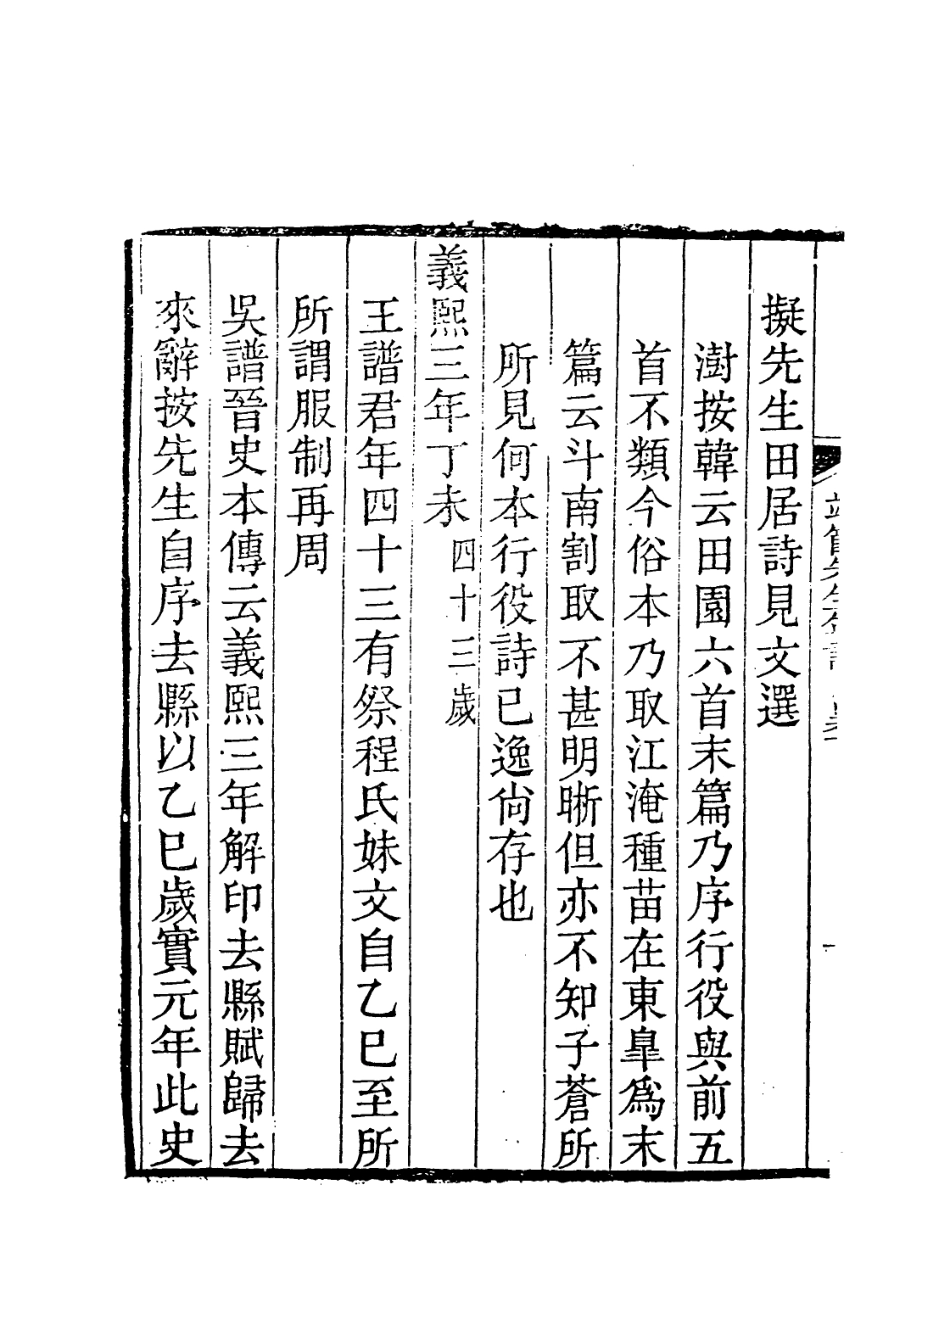 擬先生田居詩見文選
澍按韓云田園六首末篇乃序行役與前五
首不類今俗本乃取江淹種苗在東皋爲末
篇云斗南割取不甚明晰但亦不知子蒼所
所見何本行役詩已逸尙存也
義熙三年丁未 四十三歲
王譜君年四十三有祭程氏妹文自乙巳至所
所謂服制再周
吳譜晉史本傳云義熙三年解印去縣賦歸去
來辭按先生自序去縣以乙巳歲實元年此史